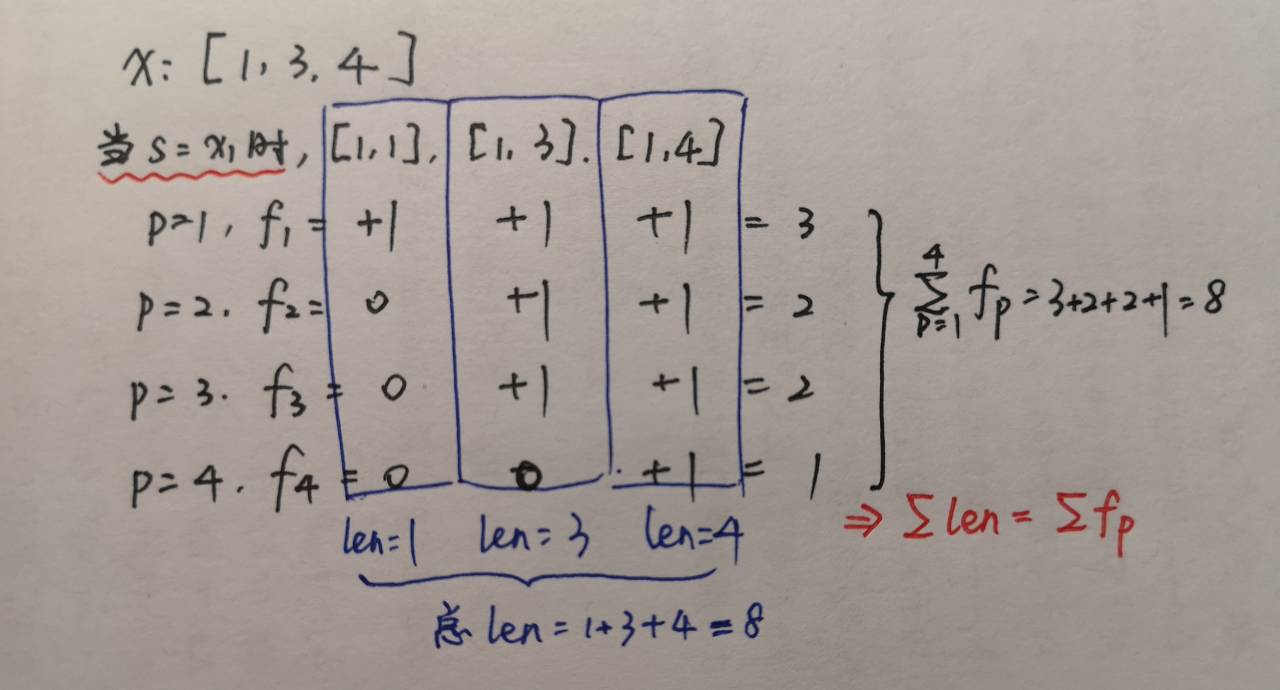 x: [1, 3, 4]
当 s = x₁ 时, [1,1], [1, 3]. [1,4]
p=1, f₁ = +1 +1 +1 = 3
p=2. f₂= 0 +1 +1 = 2
p=3. f₃ = 0 +1 +1 = 2
p=4. f₄ = 0 0 +1 = 1
∑_{p=1}^{4} fₚ = 3+2+2+1=8
len=1 len=3 len=4
⇒ ∑len = ∑fₚ
总 len = 1+3+4=8